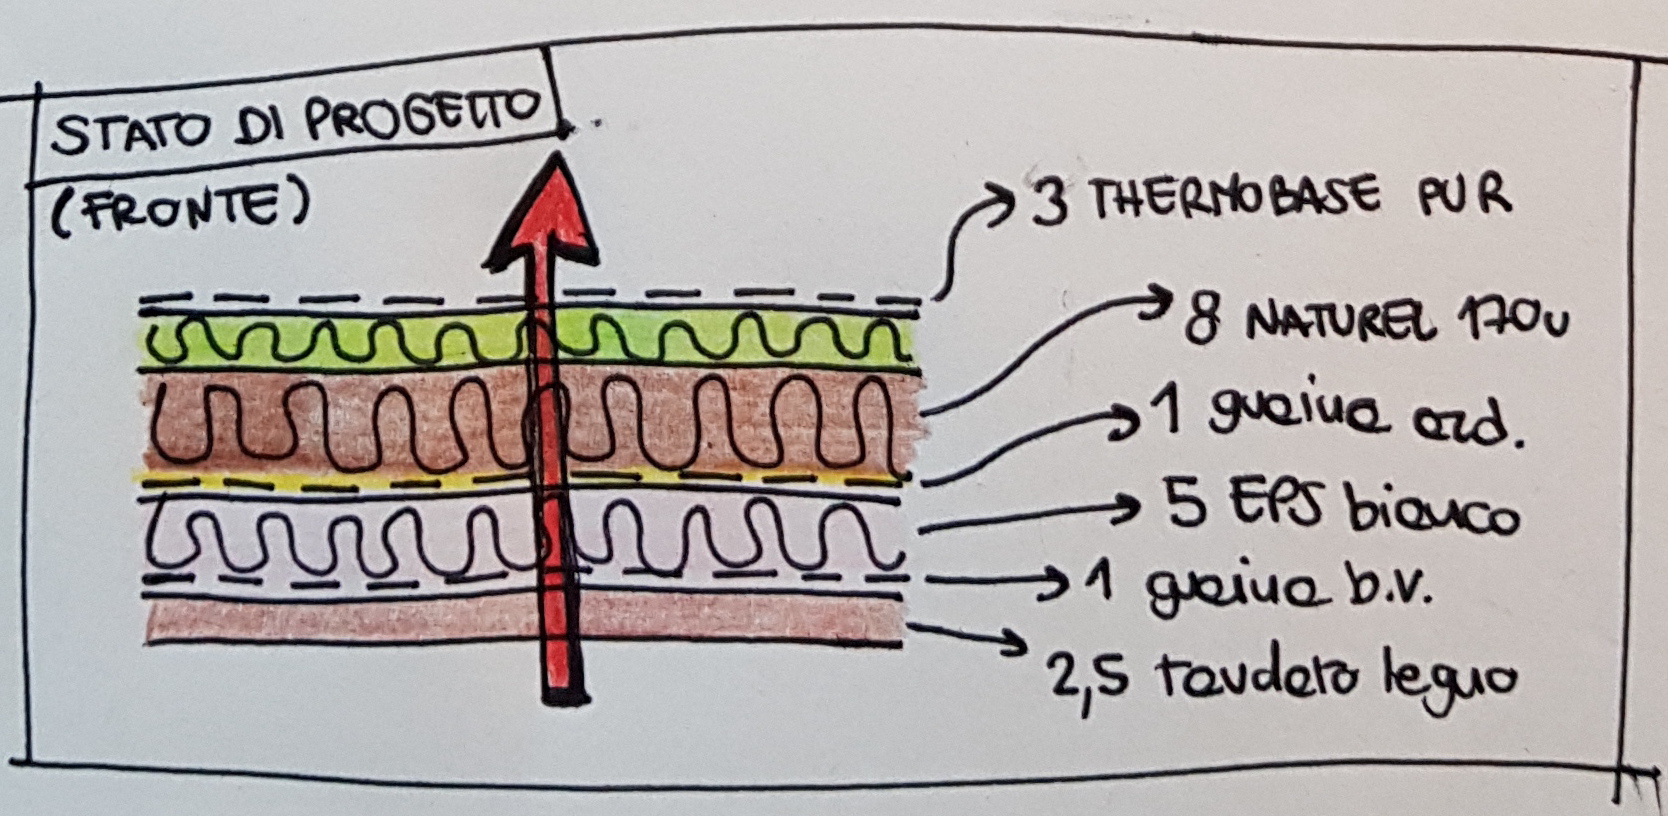 STATO DI PROGETTO
(FRONTE)
3 THERMOBASE PUR
8 NATUREL 170υ
1 guaina ard.
5 EPS bianco
1 guaina b.v.
2,5 tavolato legno